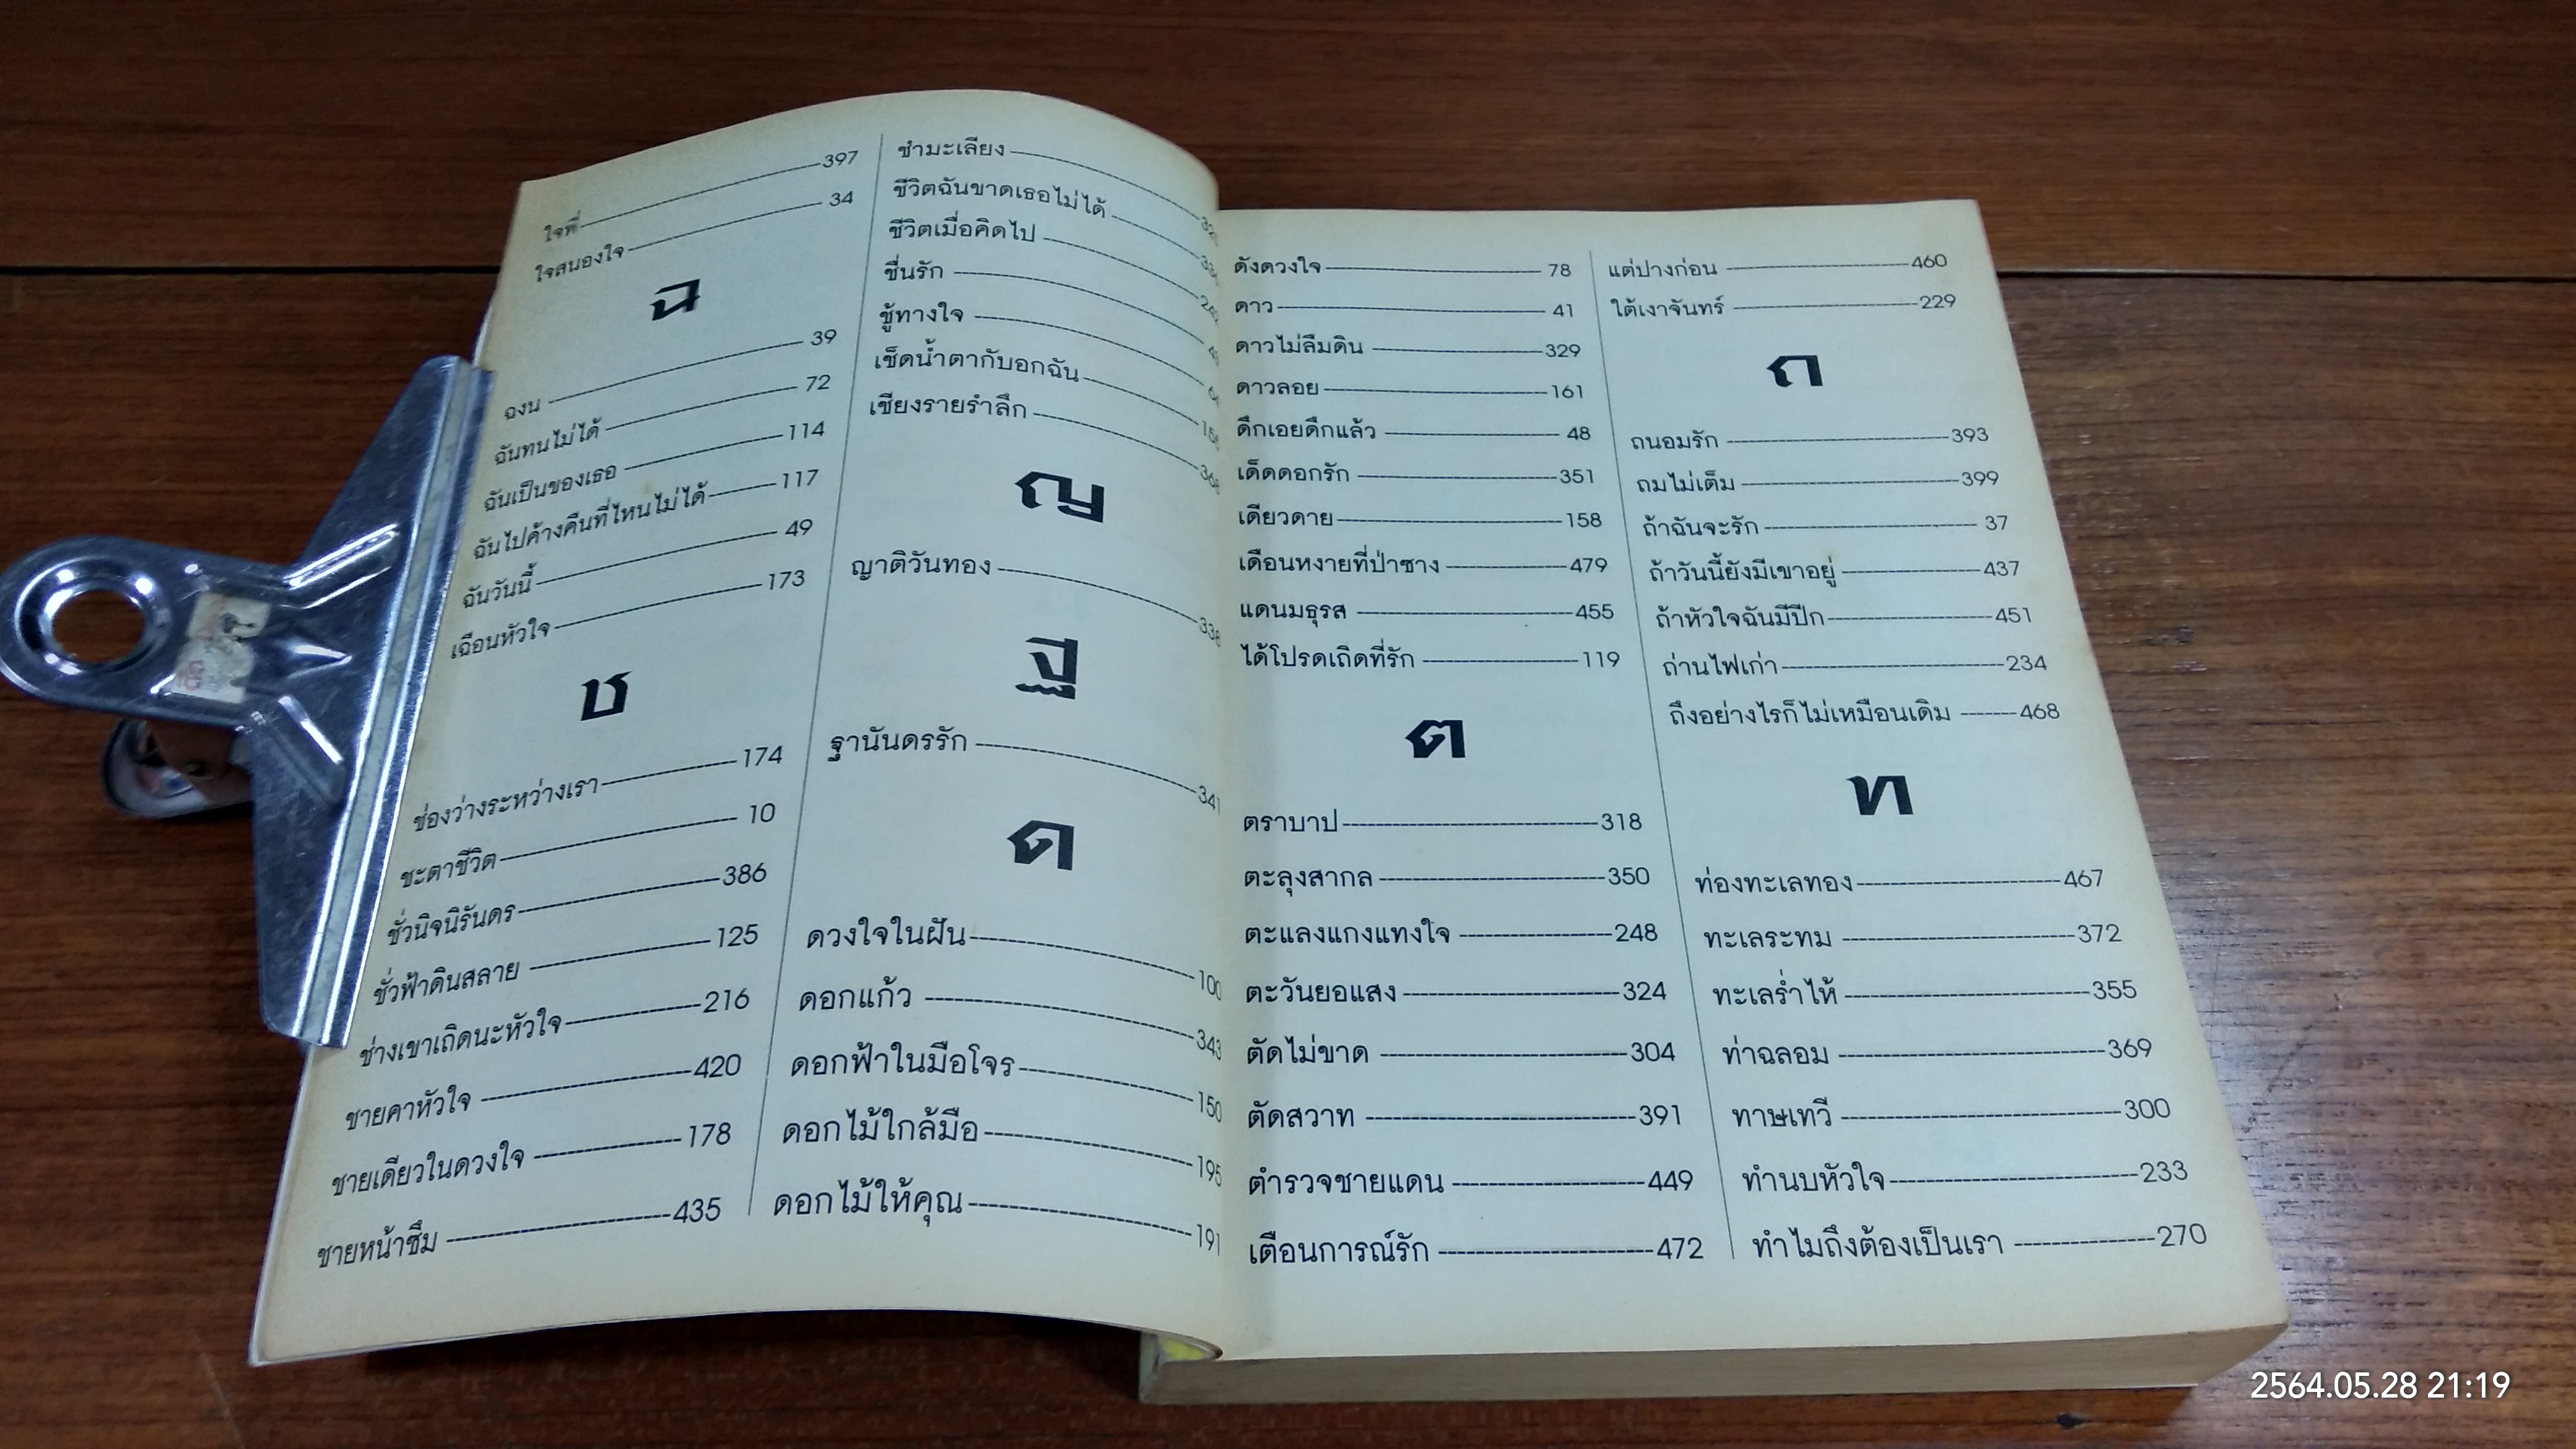 ใจพี่ 397
ใจสนองใจ 34
ฉ
ฉงน 39
ฉันทนไม่ได้ 72
ฉันเป็นของเธอ 114
ฉันไปค้างคืนที่ไหนไม่ได้ 117
ฉันวันนี้ 49
เฉือนหัวใจ 173
ช
ช่องว่างระหว่างเรา 174
ชะตาชีวิต 10
ชั่วนิจนิรันดร 386
ชั่วฟ้าดินสลาย 125
ช่างเขาเถิดนะหัวใจ 216
ชายคาหัวใจ 420
ชายเดียวในดวงใจ 178
ชายหน้าซึม 435
ชำมะเลียง
ชีวิตฉันขาดเธอไม่ได้
ชีวิตเมื่อคิดไป
ชื่นรัก
ชู้ทางใจ
เช็ดน้ำตากับอกฉัน
เชียงรายรำลึก
ญ
ญาติวันทอง 338
ฐ
ฐานันดรรัก 341
ด
ดวงใจในฝัน 100
ดอกแก้ว 343
ดอกฟ้าในมือโจร 150
ดอกไม้ใกล้มือ 195
ดอกไม้ให้คุณ 191
ดังดวงใจ 78
ดาว 41
ดาวไม่ลืมดิน 329
ดาวลอย 161
ดึกเอยดึกแล้ว 48
เด็ดดอกรัก 351
เดียวดาย 158
เดือนหงายที่ป่าซาง 479
แดนมธุรส 455
ได้โปรดเถิดที่รัก 119
ต
ตราบาป 318
ตะลุงสากล 350
ตะแลงแกงแทงใจ 248
ตะวันยอแสง 324
ตัดไม่ขาด 304
ตัดสวาท 391
ตำรวจชายแดน 449
เตือนการณ์รัก 472
แต่ปางก่อน 460
ใต้เงาจันทร์ 229
ถ
ถนอมรัก 393
ถมไม่เต็ม 399
ถ้าฉันจะรัก 37
ถ้าวันนี้ยังมีเขาอยู่ 437
ถ้าหัวใจฉันมีปีก 451
ถ่านไฟเก่า 234
ถึงอย่างไรก็ไม่เหมือนเดิม 468
ท
ท่องทะเลทอง 467
ทะเลระทม 372
ทะเลร่ำไห้ 355
ท่าฉลอม 369
ทาษเทวี 300
ทำนบหัวใจ 233
ทำไมถึงต้องเป็นเรา 270
2564.05.28 21:19